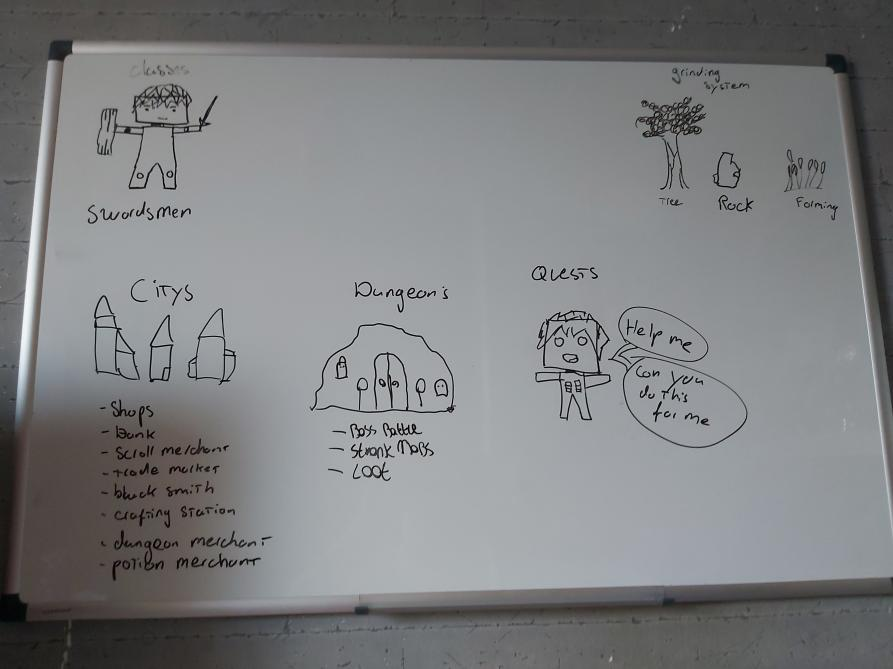 classes
Swordsmen
grinding
system
Tree
Rock
Farming
Citys
- Shops
- bank
- scroll merchant
- trade market
- black smith
- crafting station
- dungeon merchant
- potion merchant
Dungeon's
- Boss Battle
- Stronk Mobs
- Loot
Quests
Help me
Can you
do this
for me